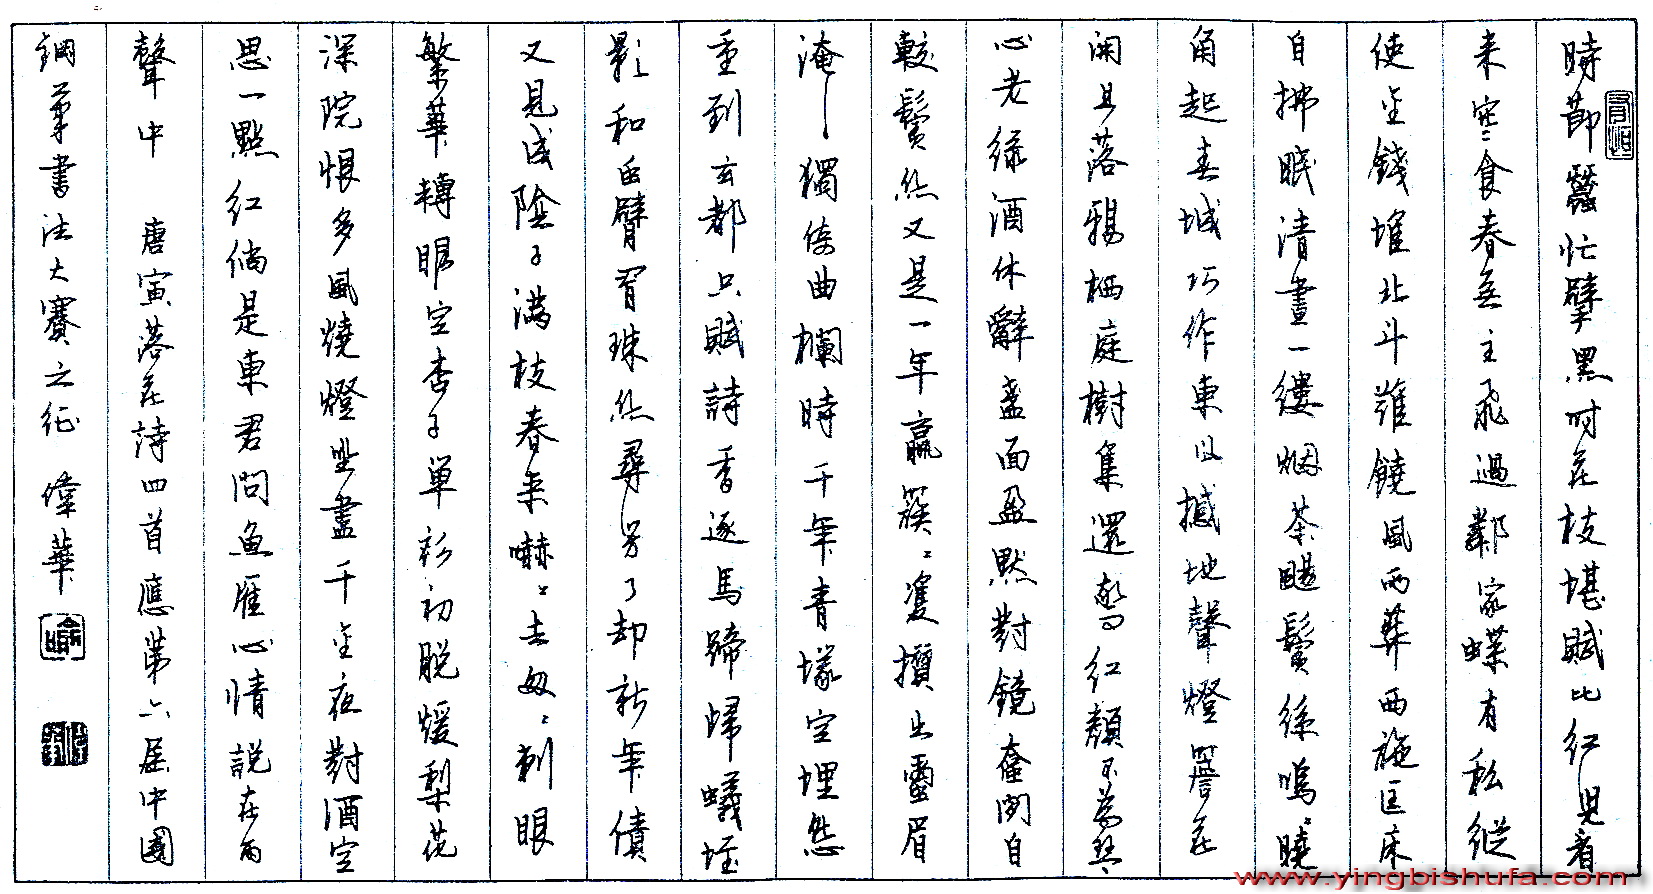 時節蠶忙擘黑時花枝堪賦比紅兒看
来寒食春無主飛過鄰家蝶有私縱
使金錢堆北斗難饒風雨葬西施匡床
自拂眠清晝一縷烟茶颺鬢絲嗚嗚曉
角起春城巧作東風撼地聲燈照花
開且落鴉栖庭樹集還驚紅顔不為琴
心老緑酒休辭盞面盈默對鏡奩閑自
較鬢絲又是一年贏簇簇雙攢出繭眉
淹淹獨倚曲欄時千年青塚空埋怨
重到玄都只賦詩香逐馬蹄歸蟻垤
影和虫臂罥珠絲尋尋了却新年債
又見成陰子滿枝春来嚇嚇去匆匆刺眼
繁華轉眼空杏子單衫初脱煖梨花
深院恨多風燒燈坐盡千金夜對酒空
思一點紅倘是東君問魚雁心情説在雨
聲中 唐寅落花詩四首應第六届中國
鋼筆書法大賽之征 偉華
www.yingbishufa.com